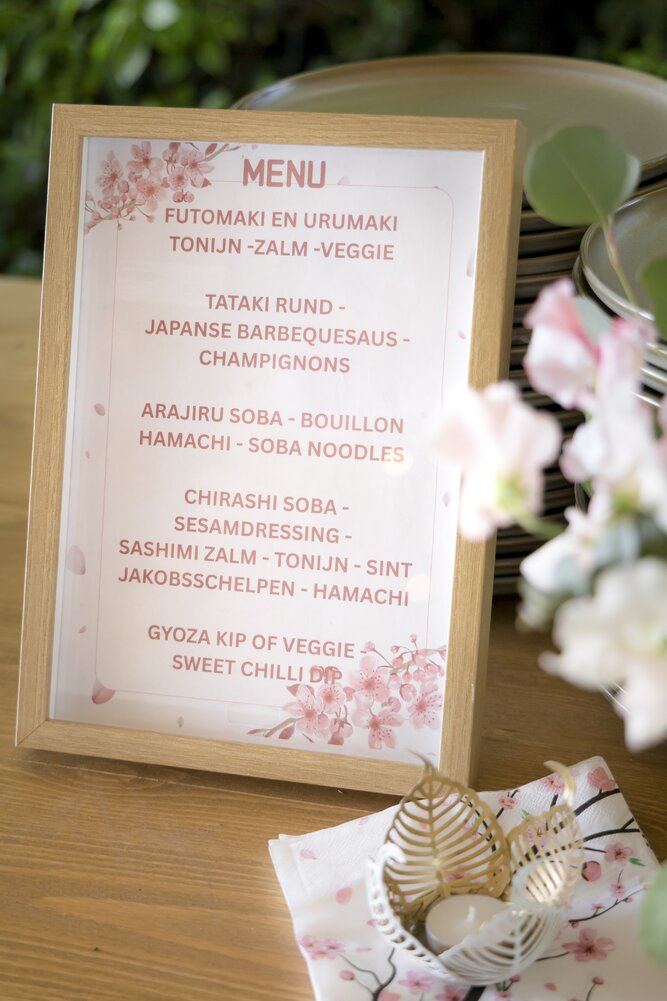 MENU
FUTOMAKI EN URUMAKI
TONIJN -ZALM -VEGGIE
TATAKI RUND -
JAPANSE BARBEQUESAUS -
CHAMPIGNONS
ARAJIRU SOBA - BOUILLON
HAMACHI - SOBA NOODLES
CHIRASHI SOBA -
SESAMDRESSING -
SASHIMI ZALM - TONIJN - SINT
JAKOBSSCHELPEN - HAMACHI
GYOZA KIP OF VEGGIE -
SWEET CHILLI DIP